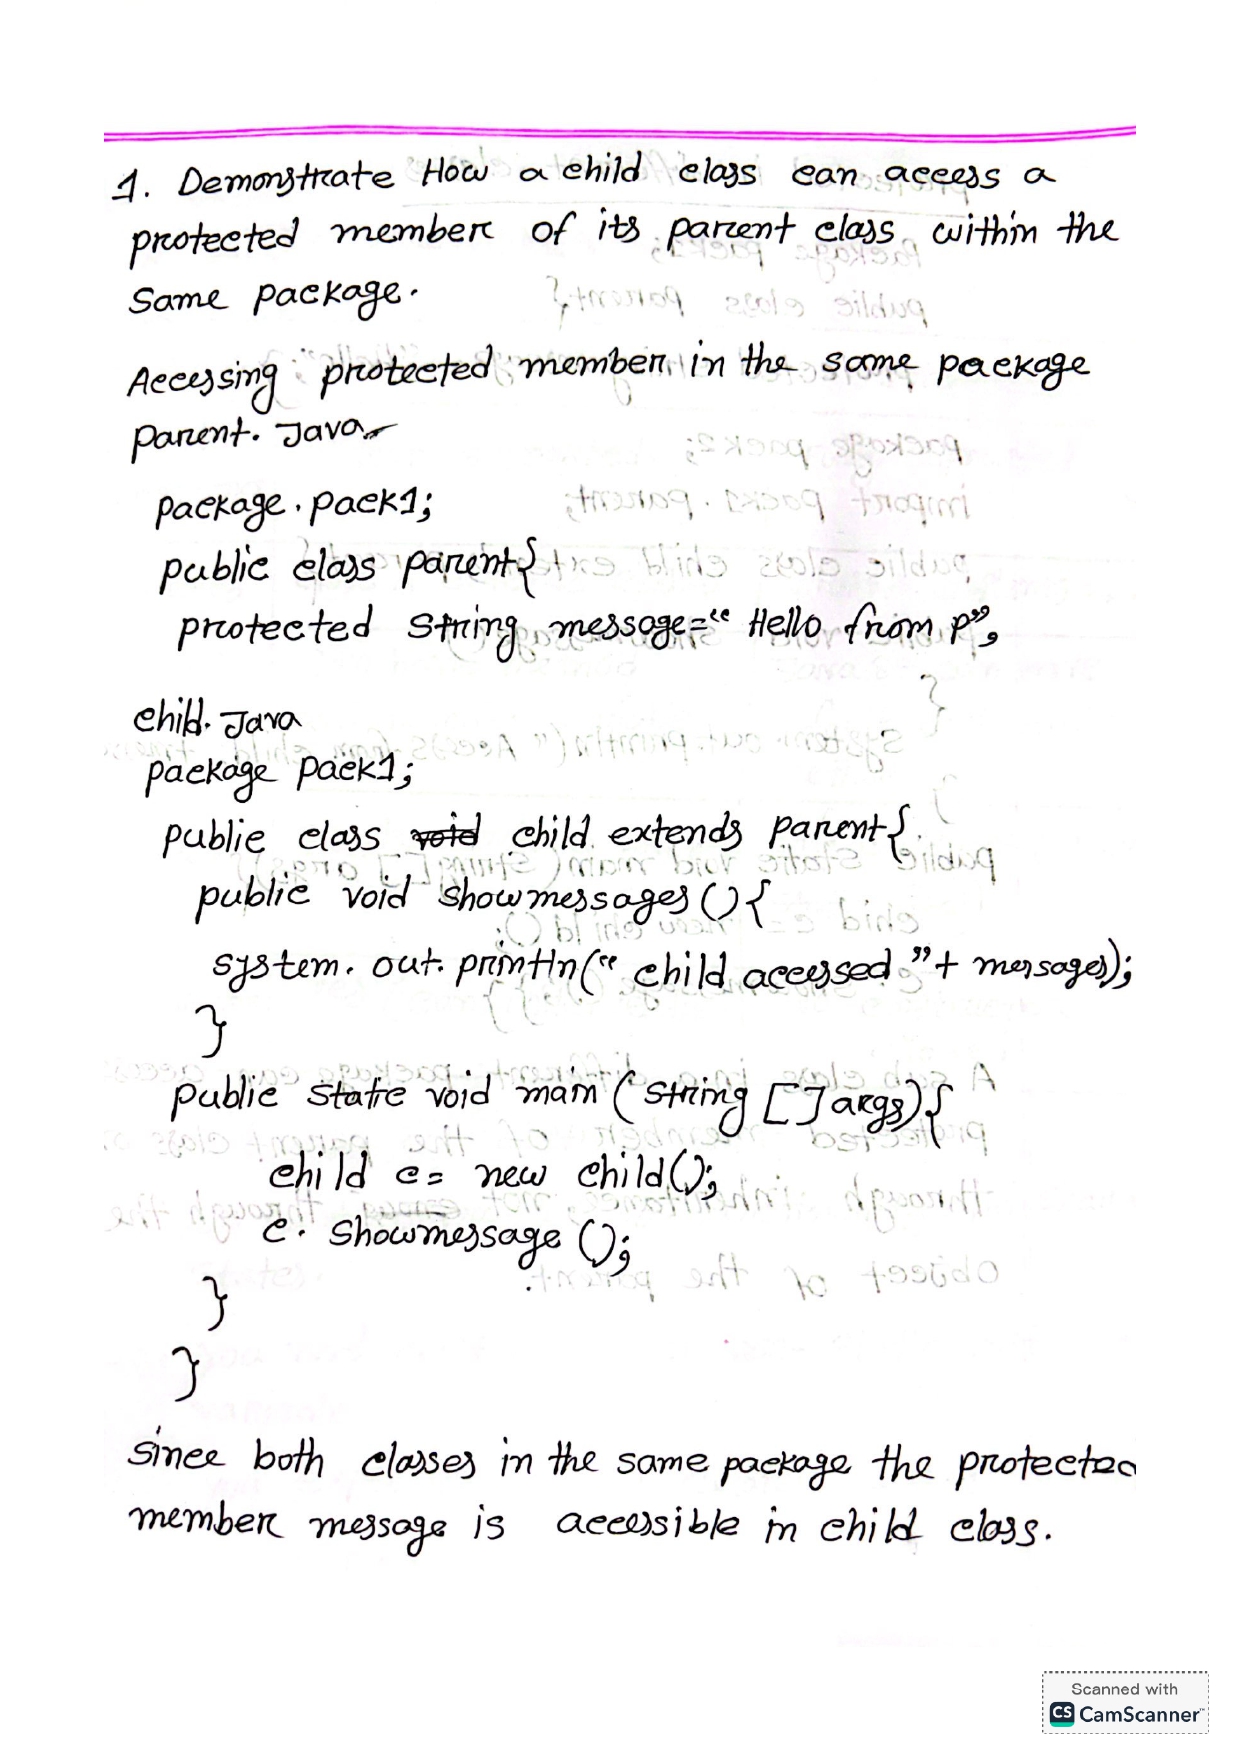 1. Demonstrate How a child class can access a
protected member of its parent class within the
same package.
Accessing protected member in the same package
parent. Java
package. pack1;
public class parent{
protected String message=“ Hello from p”,
child. Java
package pack1;
public class void child extends parent{
public void showmessages () {
system. out. println(“ child accessed ”+ messages);
}
public static void main ( string [] args) {
child c= new child();
c. showmessage ();
}
}
since both classes in the same package the protected
member message is accessible in child class.
Scanned with
CS CamScanner